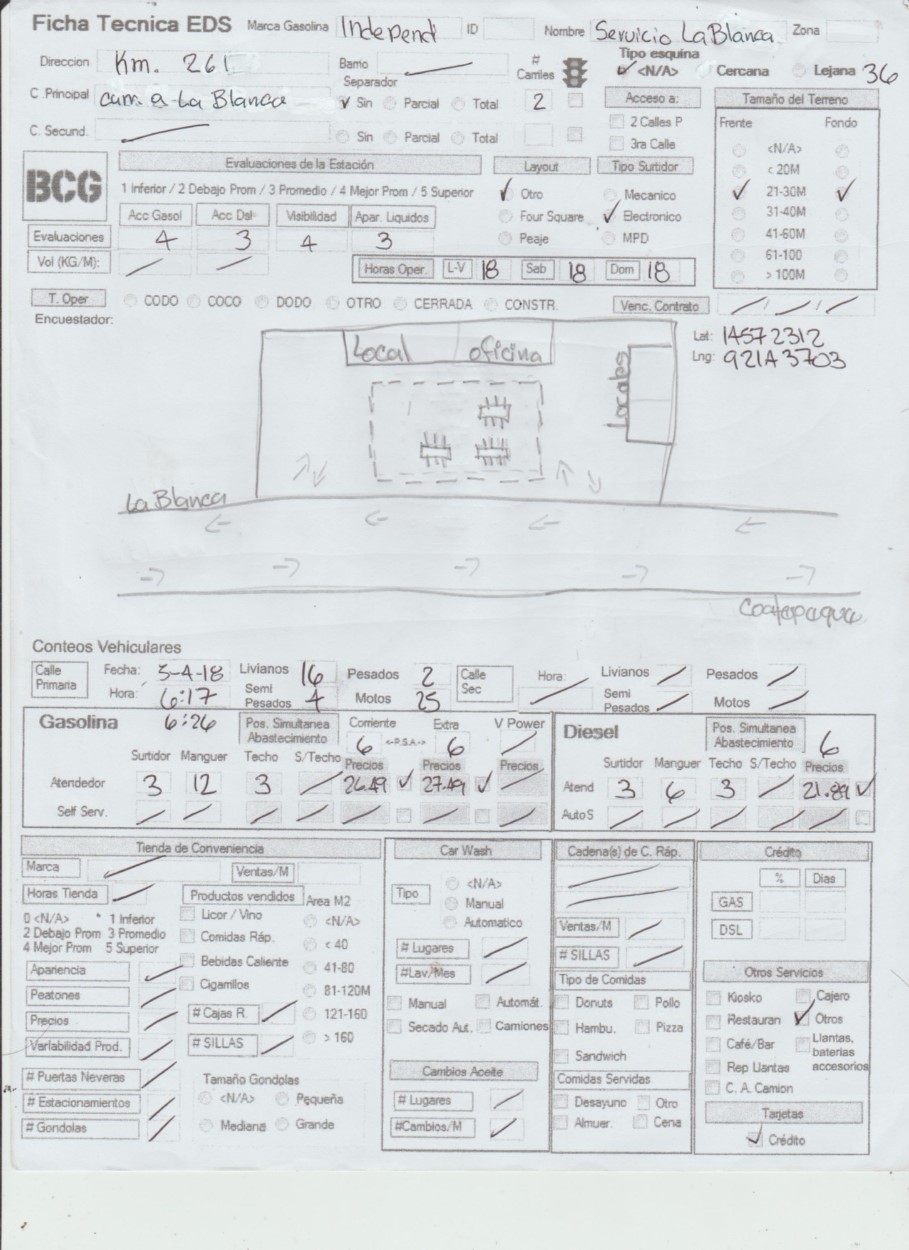 Ficha Tecnica EDS Marca Gasolina Independ ID Nombre Servicio La Blanca Zona
Direccion Km. 261 Barrio # Carriles Tipo esquina <N/A> Cercana Lejana 36
C .Principal cam. a La Blanca Separador Sin Parcial Total 2 Acceso a: Tamaño del Terreno
C. Secund. Sin Parcial Total 2 Calles P Frente Fondo
3ra Calle <N/A>
BCG Evaluaciones de la Estación Layout Tipo Surtidor < 20M
1 Inferior / 2 Debajo Prom / 3 Promedio / 4 Mejor Prom / 5 Superior Otro Mecanico 21-30M
Acc Gasol Acc Dsl Visibilidad Apar. Liquidos Four Square Electronico 31-40M
Evaluaciones 4 3 4 3 Peaje MPD 41-60M
Vol (KG/M): Horas Oper. L-V 18 Sab 18 Dom 18 61-100
> 100M
T. Oper CODO COCO DODO OTRO CERRADA CONSTR. Venc. Contrato
Encuestador:
Lat: 14572312
Lng: 921A3703
Local oficina
Locales
La Blanca
Coatepaque
Conteos Vehiculares
Calle Primaria Fecha: 5-4-18 Livianos 16 Pesados 2 Calle Sec Hora: Livianos Pesados
Hora: 6:17 Semi Pesados 4 Motos 25 Semi Pesados Motos
Gasolina 6:26 Pos. Simultanea Abastecimiento Corriente Extra V Power Diesel Pos. Simultanea Abastecimiento 6
6 <-P.S.A-> 6
Surtidor Manguer Techo S/Techo Precios Precios Precios Surtidor Manguer Techo S/Techo Precios
Atendedor 3 12 3 26.49 27.49 Atend 3 6 3 21.89
Self Serv. Auto S
Tienda de Conveniencia Car Wash Cadena(s) de C. Ráp. Crédito
Marca Ventas/M Tipo <N/A> % Dias
Horas Tienda Productos vendidos Area M2 Manual GAS
0 <N/A> * 1 Inferior Licor / Vino <N/A> Automatico Ventas/M DSL
2 Debajo Prom 3 Promedio Comidas Ráp. < 40 # Lugares # SILLAS
4 Mejor Prom 5 Superior Bebidas Caliente 41-80 #Lav/Mes Tipo de Comidas Otros Servicios
Apariencia Cigarrillos 81-120M Manual Automát. Donuts Pollo Kiosko Cajero
Peatones # Cajas R. 121-160 Secado Aut. Camiones Hambu. Pizza Restauran Otros
Precios # SILLAS > 160 Sandwich Café/Bar Llantas, baterias accesorios
Variabilidad Prod. Cambios Aceite Comidas Servidas Rep Llantas
# Puertas Neveras Tamaño Gondolas # Lugares Desayuno Otro C. A. Camion
# Estacionamientos <N/A> Pequeña #Cambios/M Almuer. Cena Tarjetas
# Gondolas Mediana Grande Crédito